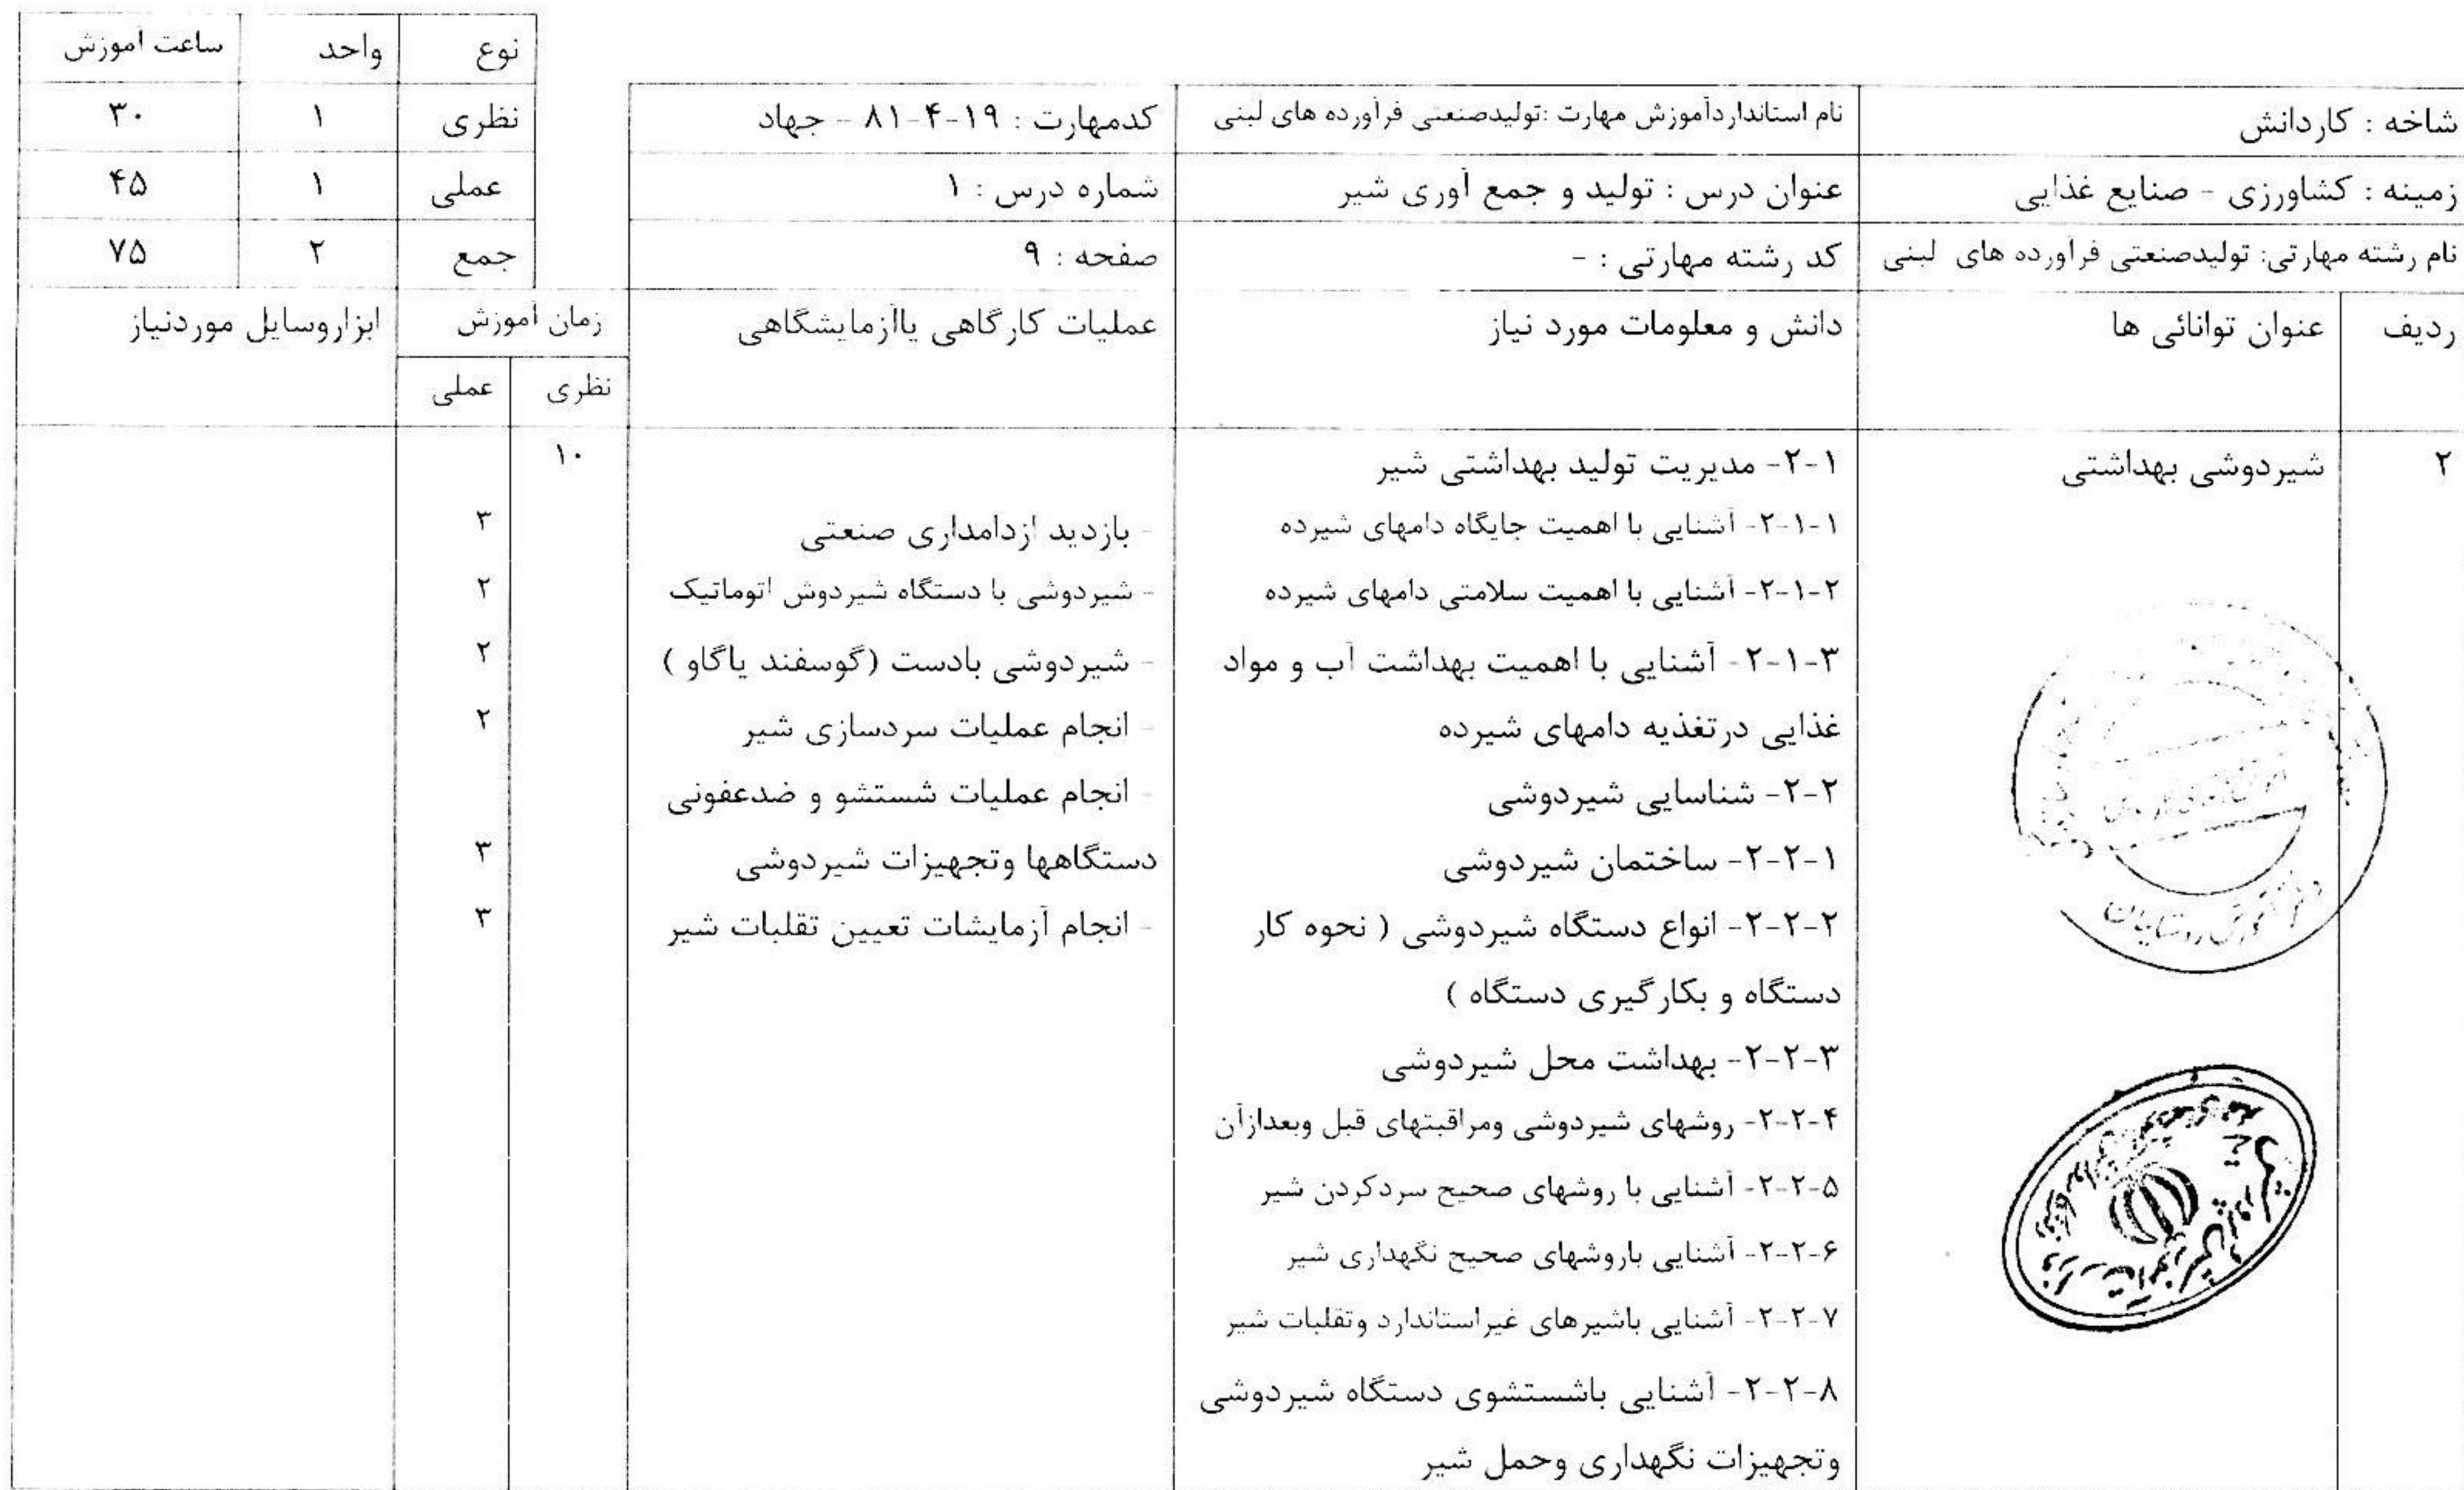 نوع واحد ساعت آموزش
نظری ۱ ۳۰
عملی ۱ ۴۵
جمع ۲ ۷۵
شاخه : کاردانش نام استانداردآموزش مهارت :تولیدصنعتی فرآورده های لبنی کدمهارت : ۱۹-۴-۸۱ - جهاد
زمینه : کشاورزی - صنایع غذایی عنوان درس : تولید و جمع آوری شیر شماره درس : ۱
نام رشته مهارتی: تولیدصنعتی فرآورده های لبنی کد رشته مهارتی : - صفحه : ۹
ردیف عنوان توانائی ها دانش و معلومات مورد نیاز عملیات کارگاهی یاآزمایشگاهی زمان آموزش ابزاروسایل موردنیاز
نظری عملی
۲ شیردوشی بهداشتی ۲-۱- مدیریت تولید بهداشتی شیر ۱۰
۲-۱-۱- آشنایی با اهمیت جایگاه دامهای شیرده - بازدید ازدامداری صنعتی ۳
۲-۱-۲- آشنایی با اهمیت سلامتی دامهای شیرده - شیردوشی با دستگاه شیردوش اتوماتیک ۲
۲-۱-۳- آشنایی با اهمیت بهداشت آب و مواد - شیردوشی بادست (گوسفند یاگاو ) ۲
غذایی درتغذیه دامهای شیرده - انجام عملیات سردسازی شیر ۲
۲-۲- شناسایی شیردوشی - انجام عملیات شستشو و ضدعفونی
۲-۲-۱- ساختمان شیردوشی دستگاهها وتجهیزات شیردوشی ۳
۲-۲-۲- انواع دستگاه شیردوشی ( نحوه کار - انجام آزمایشات تعیین تقلبات شیر ۳
دستگاه و بکارگیری دستگاه )
۲-۲-۳- بهداشت محل شیردوشی
۲-۲-۴- روشهای شیردوشی ومراقبتهای قبل وبعدازآن
۲-۲-۵- آشنایی با روشهای صحیح سردکردن شیر
۲-۲-۶- آشنایی باروشهای صحیح نگهداری شیر
۲-۲-۷- آشنایی باشیرهای غیراستاندارد وتقلبات شیر
۲-۲-۸- آشنایی باشستشوی دستگاه شیردوشی
وتجهیزات نگهداری وحمل شیر